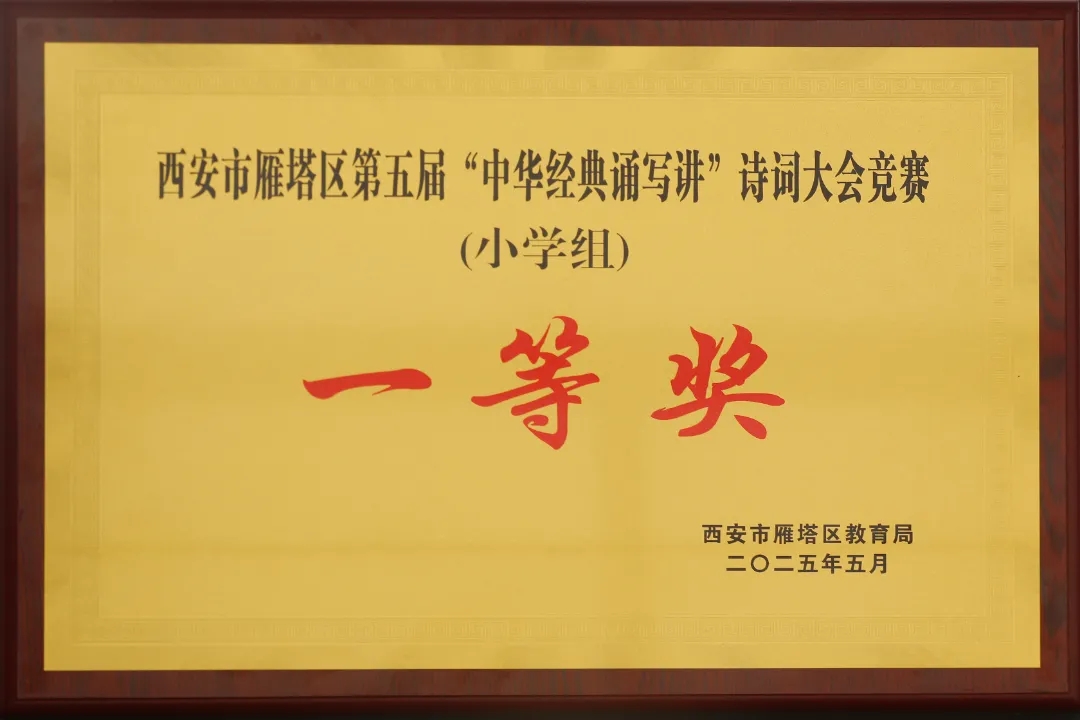 西安市雁塔区第五届“中华经典诵写讲”诗词大会竞赛
(小学组)
一等奖
西安市雁塔区教育局
二〇二五年五月